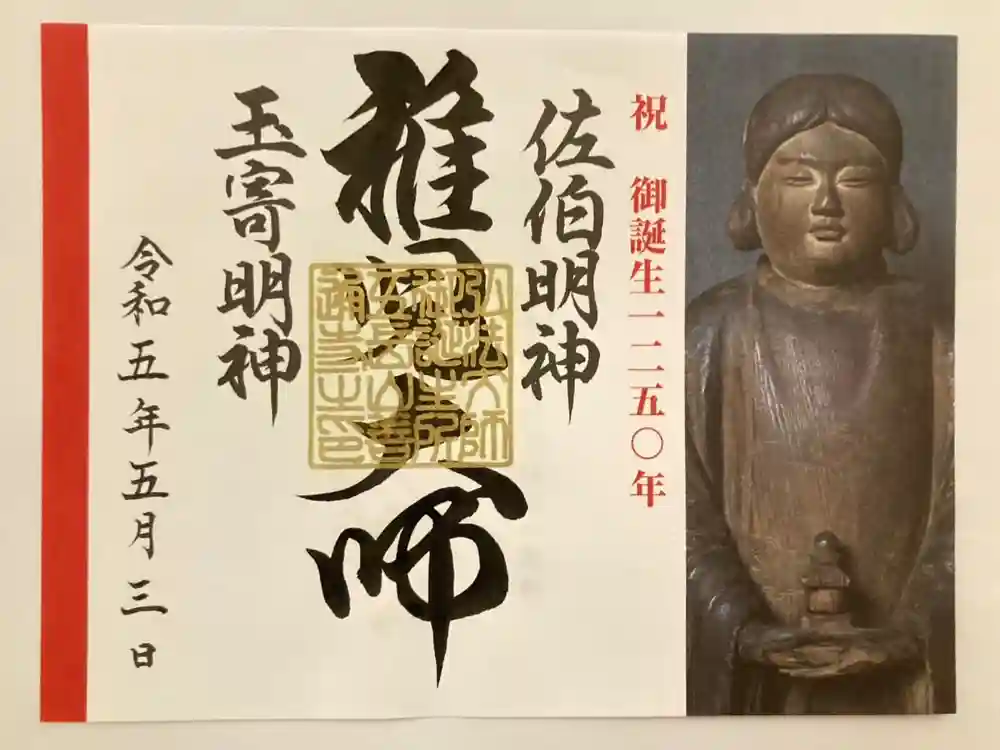 祝 御誕生一二五〇年
佐伯明神
稚児大師
玉寄明神
令和五年五月三日
弘法大師
御誕生所
五岳山善
通寺之印